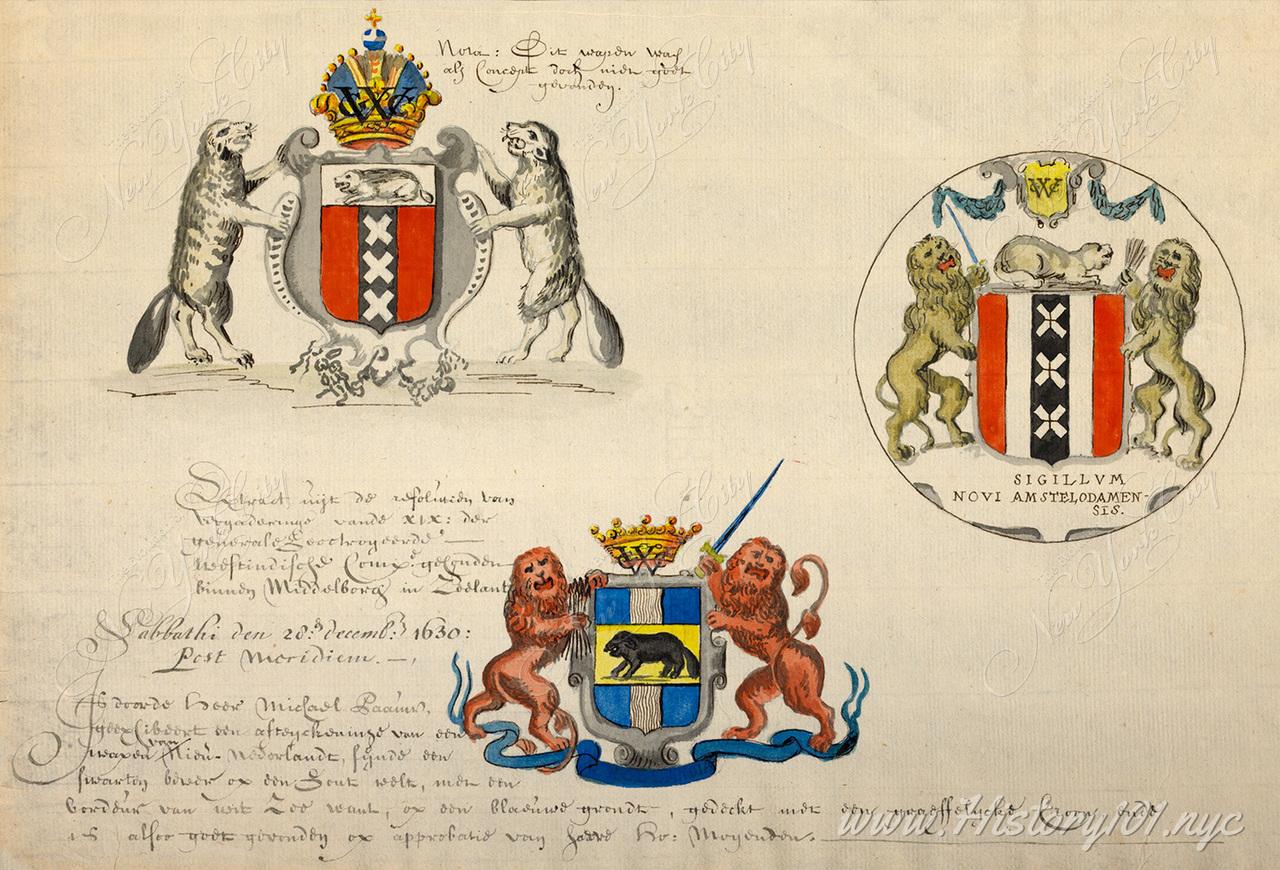 GWC
Nota: Dit wapen was
als Concept doch niet goet
gevonden.
GWC
SIGILLVM
NOVI AMSTELODAMEN-
SIS.
Extract uijt de resolutien van
vergaderinge vande XIX: der
generale Geoctroyeerde
Westindische Compe. gehouden
binnen Middelborch in Zeelant
Sabbathi den 28en. decembr. 1630:
Post Meridiem.
GWC
Is doorde Heer Michael Paauw,
geexhibeert een afteyckeninge van een
wapen van Nieu-Nederlandt, sijnde een
swarten bever op een Gout velt, met een
bordeur van wit Zee want, op een blaeuwe grondt, gedeckt met een graeffelycke kroon ende
is alsoo goet gevonden op approbatie van haere Ho: Mogenden.
www.History101.nyc
New York City
New York City
New York City
New York City
New York City
New York City
New York City